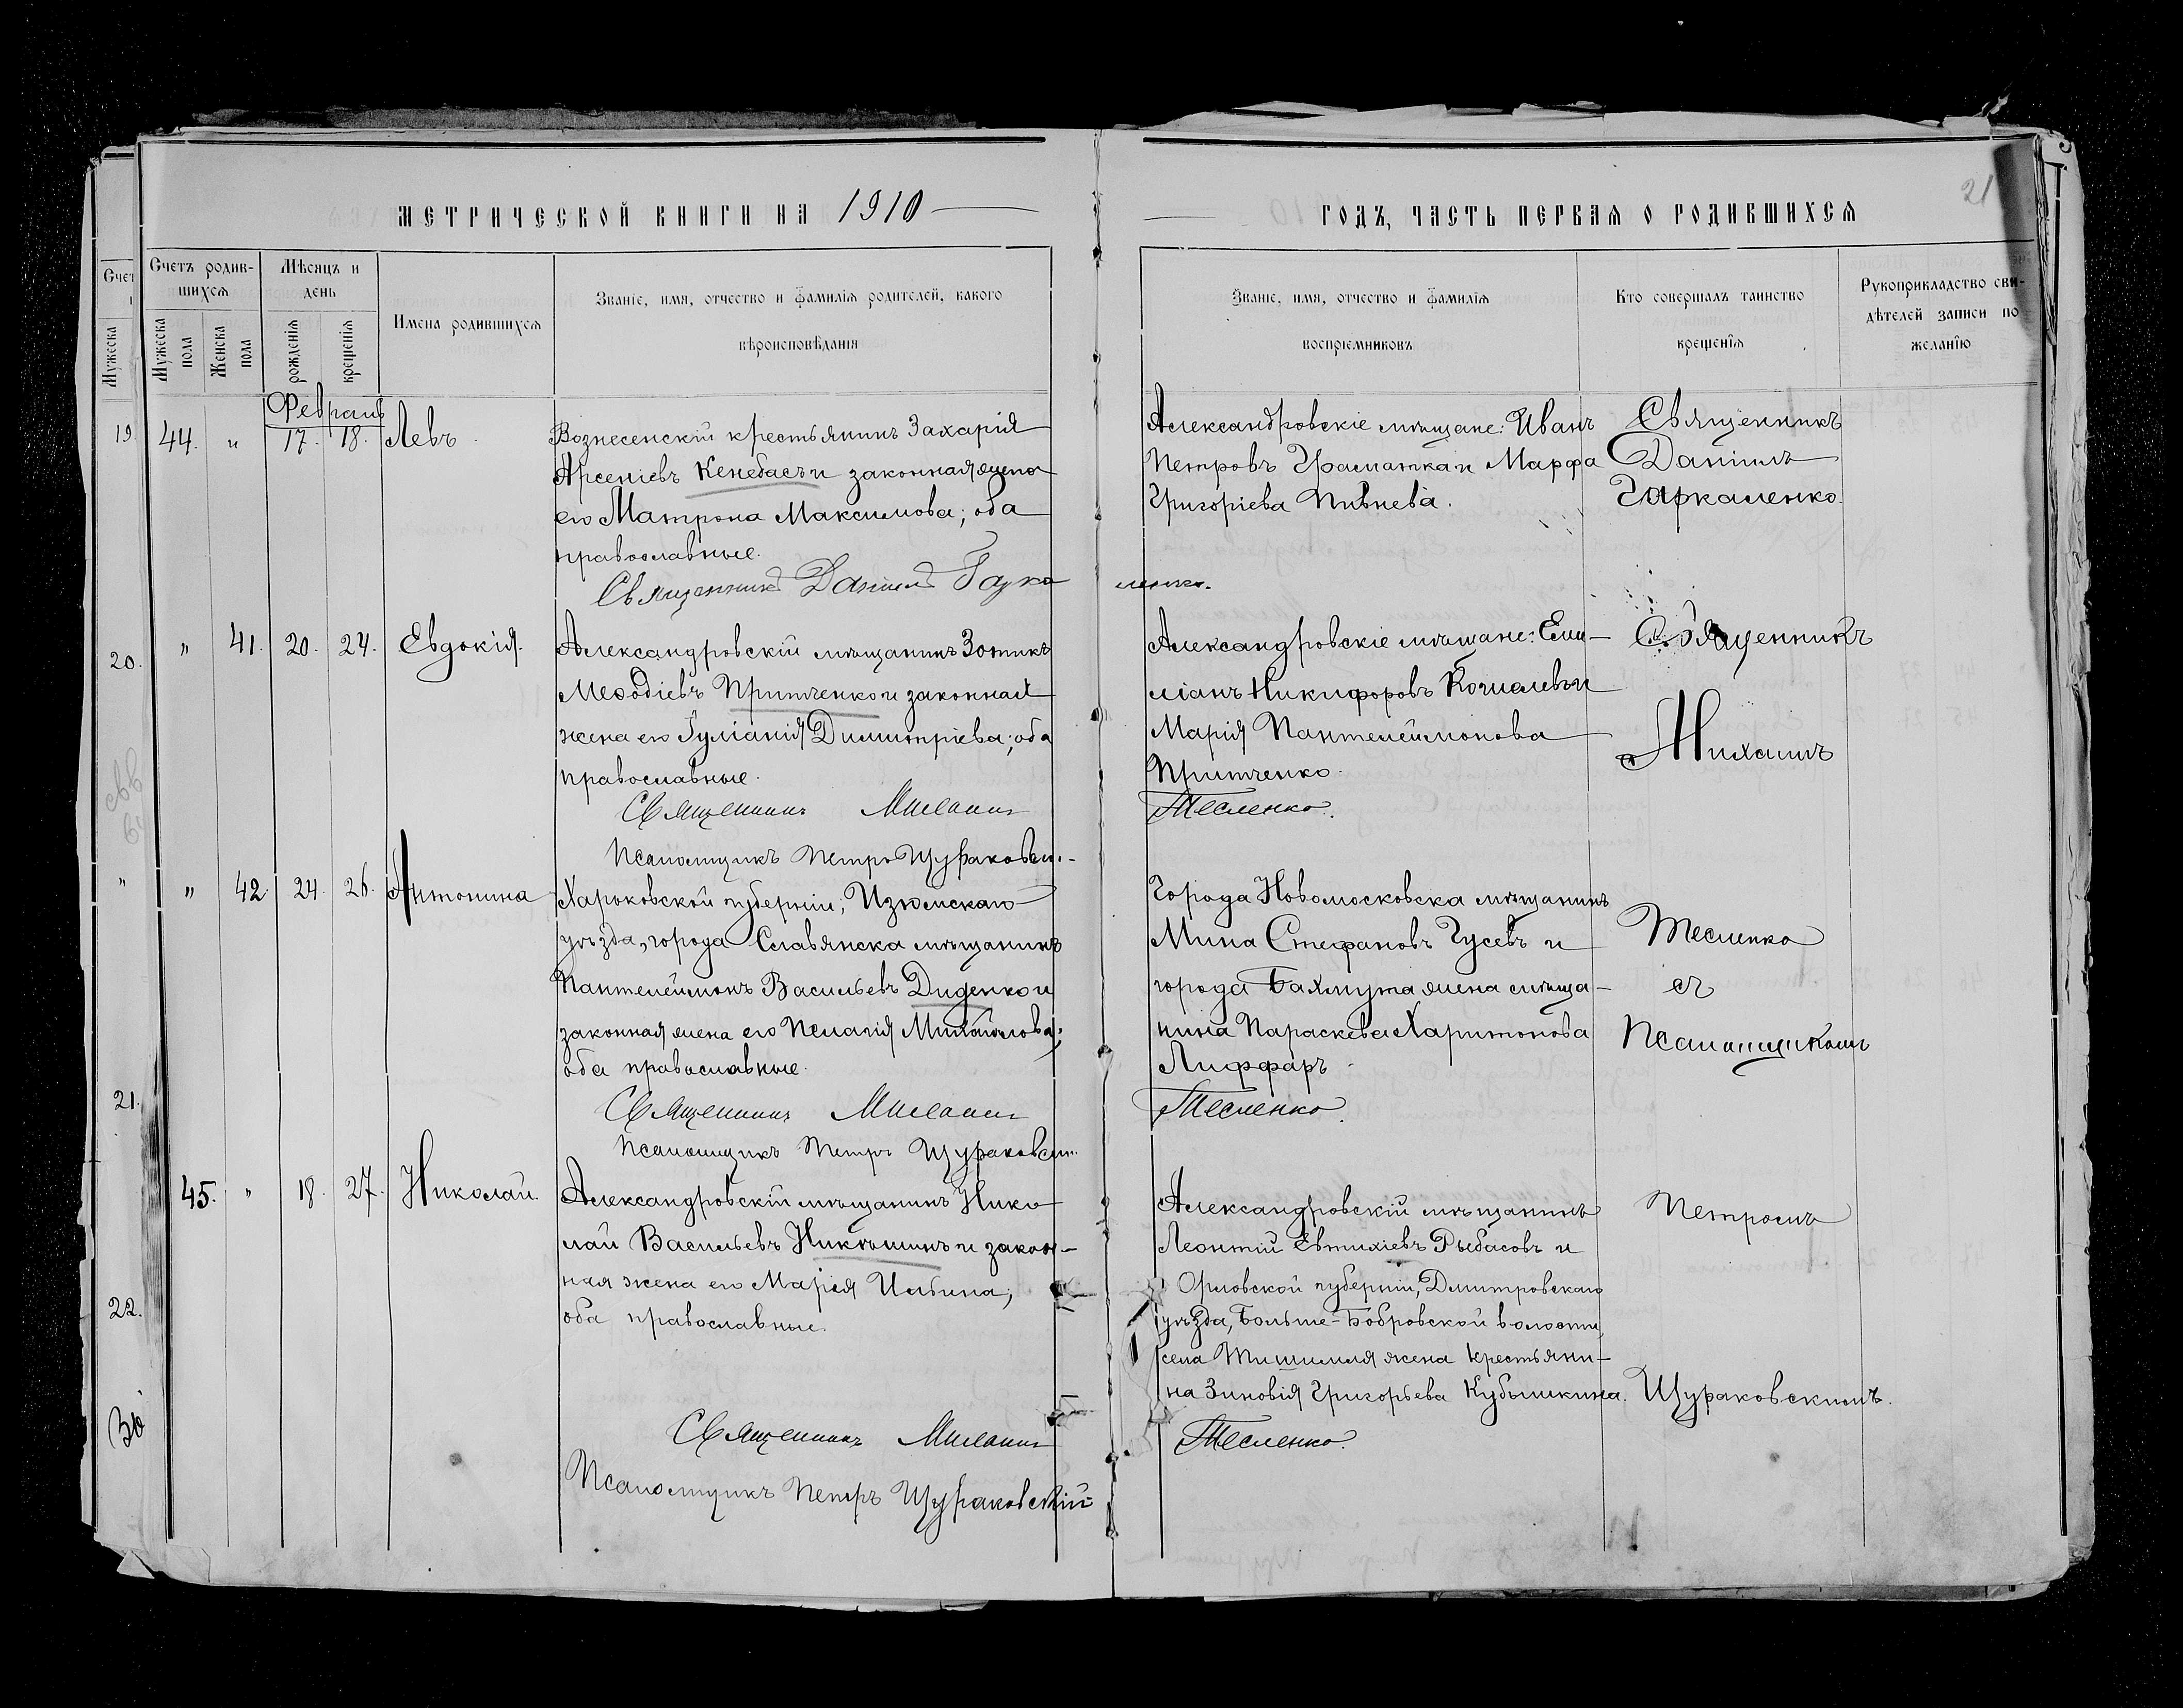 МЕТРИЧЕСКОЙ КНИГИ НА 1910
Счетъ родив-
шихся
Мужеска
пола
Женска
пола
Мѣсяцъ и
день
рожденія
крещенія
Имена родившихся
Званіе, имя, отчество и фамилія родителей, какого
вѣроисповѣданія
Февраль
44. " 17. 18. Левъ
Вознесенскій крестьянинъ Захарія
Арсеніевъ и законная жена
его Матрона Максимова; оба
православные.
Священникъ Даніилъ Гарка ленко.
" 41. 20. 24. Евдокія.
Александровскій мѣщанинъ Зотикъ
Меѳодіевъ Притченко и законная
жена его Іуліанія Димитріева; оба
православные.
Священникъ Михаилъ Тесленко.
Псаломщикъ Петръ Щураковскі
" 42. 24. 26. Антонина
Харьковской губерніи, Изюмскаго
уѣзда, города Славянска мѣщанинъ
Пантелеймонъ Васильевъ Диденко и
законная жена его Пелагія Михайлова;
оба православные.
Священникъ Михаилъ Тесленко.
Псаломщикъ Петръ Щураковскі
45. " 18. 27. Николай.
Александровскій мѣщанинъ Нико
лай Васильевъ Никѣшинъ и закон-
ная жена его Марія Ильина;
оба православные.
Священникъ Михаилъ Тесленко.
Псаломщикъ Петръ Щураковскій
Счет
Мужеска
19
20.
"
21.
22.
21
ГОДЪ, ЧАСТЬ ПЕРВАЯ О РОДИВШИХСЯ
Званіе, имя, отчество и фамилія
воспріемниковъ
Кто совершалъ таинство
крещенія
Рукоприкладство сви-
дѣтелей записи по
желанію
Александровскіе мѣщане: Иванъ
Петровъ Граматка и Марфа
Григоріева Пивнева.
Священникъ
Даніилъ
Гаркаленко.
Александровскіе мѣщане: Еми-
ліанъ Никифоровъ и
Марія Пантелеймонова
Притченко.
Священникъ
Михаилъ
Города Новомосковска мѣщанинъ
Мина Стефановъ Гусевъ и
города Бахмута жена мѣща-
нина Параскева Харитонова
Лиффаръ.
Тесленко
съ
Псаломщикомъ
Александровскій мѣщанинъ
Леонтій Евтихіевъ Рыбасовъ и
Орловской губерніи, Дмитровскаго
уѣзда, Больше-Бобровской волости,
села жена крестьяни-
на Зиновія Григорьева Кубышкина.
Петромъ
Щураковскимъ.